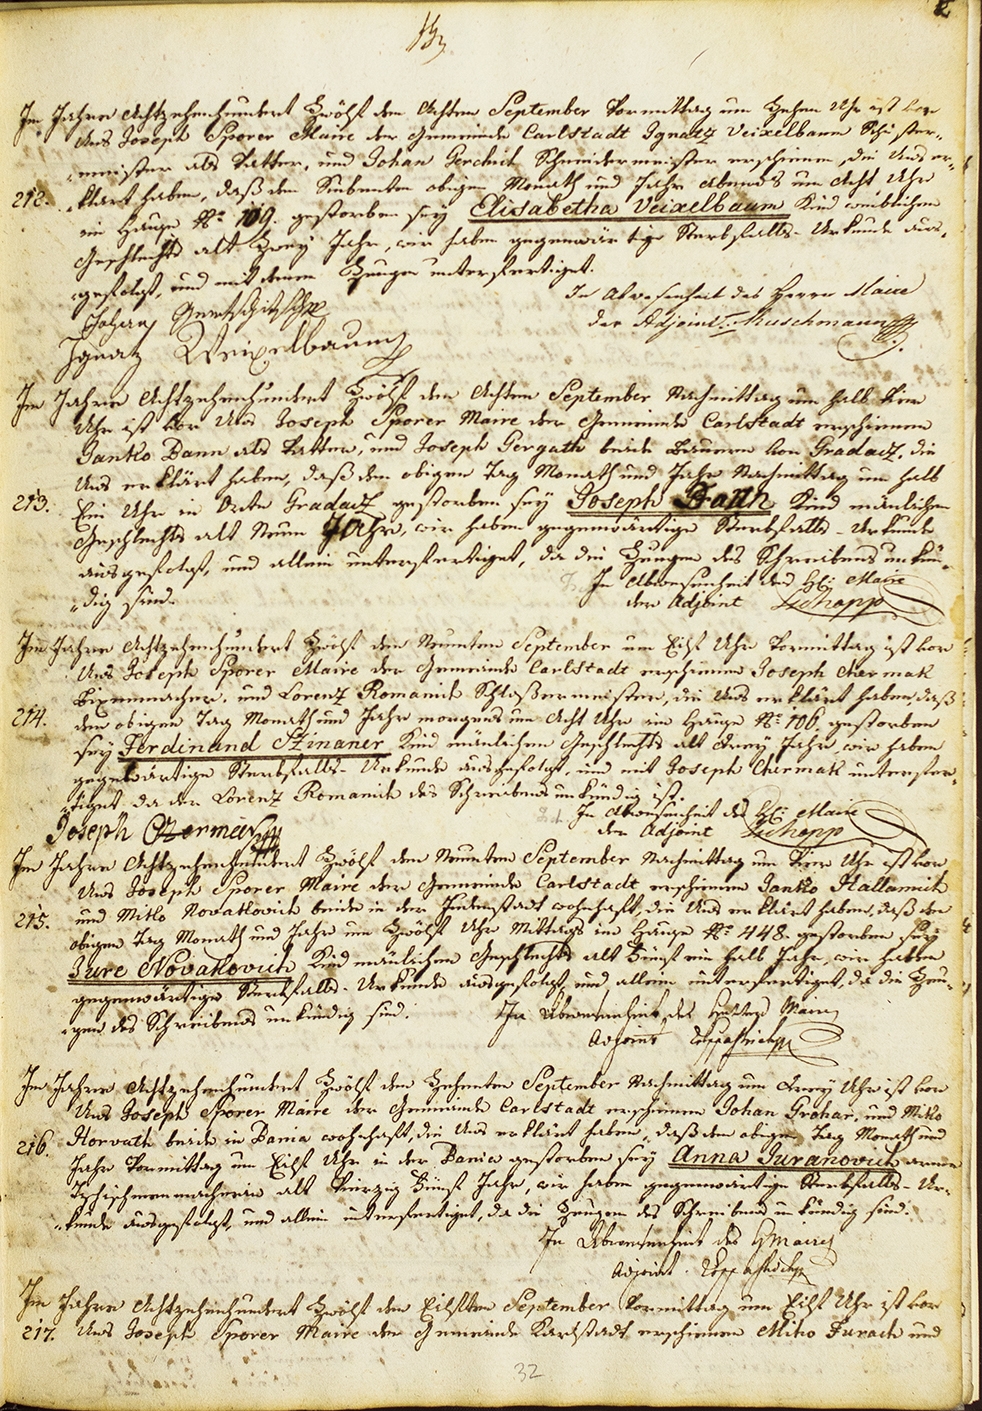 Im Jahre Achtzehenhundert Zwölf den Achten September Vormittag um Zehen Uhr ist vor
Uns Joseph Sporer Maire der Gemeinde Carlstadt Ignatz Veixelbaum Schuster-
meister als Vatter, und Johan Gerchich Schneidermeister erschienen, die Uns er-
212. klärt haben, daß den Siebenten obigen Monath und Jahr Abends um Acht Uhr
im Hause No 109. gestorben sey Elisabetha Veixelbaum Kind weiblichen
Geschlechts alt Zwey Jahr, wir haben gegenwärtige Sterbfalls-Urkunde aus-
gefolgt, und mit denen Zeugen unterfertiget.
In Abwesenheit des Herrn Maire
der Adjoint Muschmann
Johan
Ignatz Weixelbaum
Im Jahre Achtzehenhundert Zwölf den Achten September Nachmittag um halb Vier
Uhr ist vor Uns Joseph Sporer Maire der Gemeinde Carlstadt erschienen
Janko Bann als Vatter, und Joseph Pergath beide Bauern von Gradatz, die
Uns erklärt haben, daß den obigen Tag Monath und Jahr Nachmittag um halb
213. Ein Uhr in Orte Gradatz gestorben sey Joseph Bann Kind mänlichen
Geschlechts alt Neun Jahr, wir haben gegenwärtige Sterbfalls-Urkunde
ausgefolgt, und allein unterfertiget, da die Zeugen des Schreibens unkün-
dig sind.
In Abwesenheit des H: Maire
der Adjoint
Im Jahre Achtzehenhundert Zwölf den Neunten September um Eilf Uhr Vormittag ist vor
Uns Joseph Sporer Maire der Gemeinde Carlstadt erschienen Joseph Chermak
Bixenmacher, und Lorenz Romanich Schloßermeister, die Uns erklärt haben, daß
214. den obigen Tag Monath und Jahr morgens um Acht Uhr im Hause No 106 gestorben
sey Ferdinand Szinaner Kind mänlichen Geschlechts alt Drey Jahr, wir haben
gegenwärtige Sterbfalls-Urkunde ausgefolgt, und mit Joseph Chermak unterfer-
tiget da der Lorenz Romanich des Schreibens unkündig ist.
In Abwesenheit des H: Maire
der Adjoint
Joseph Czermak
Im Jahre Achtzehenhundert Zwölf den Neunten September Nachmittag um Vier Uhr ist vor
Uns Joseph Sporer Maire der Gemeinde Carlstadt erschienen Janko Hallamich
215. und Mitto Novakovich beide in der Judenstadt wohnhaft, die Uns erklärt haben, daß den
obigen Tag Monath und Jahr um Zwölf Uhr Mittags im Hause No 448. gestorben sey
Jure Novakovich Kind mänlichen Geschlechts alt Fünf ein halb Jahr, wir haben
gegenwärtige Sterbfalls-Urkunde ausgefolgt, und allein unterfertiget, da die Zeu-
gen des Schreibens unkündig sind.
In Abwesenheit des Herrn Maire
Adjoint
Im Jahre Achtzehenhundert Zwölf den Zehenten September Nachmittag um Drey Uhr ist vor
Uns Joseph Sporer Maire der Gemeinde Carlstadt erschienen Johan Grohar, und Miko
216. Horvath beide in Bania wohnhaft, die Uns erklärt haben, daß den obigen Tag Monath und
Jahr Vormittag um Eilf Uhr in der Bania gestorben sey Anna Juranovich arme
Tschismenmacherin alt Vierzig Fünf Jahr, wir haben gegenwärtige Sterbfalls-Ur-
kunde ausgefolgt, und allein unterfertiget, da die Zeugen des Schreibens unkündig sind.
In Abwesenheit des H Maire
Adjoint
Im Jahre Achtzehenhundert Zwölf den Eilften September Vormittag um Eilf Uhr ist vor
217. Uns Joseph Sporer Maire der Gemeinde Karlstadt erschienen Miho Furach und
32